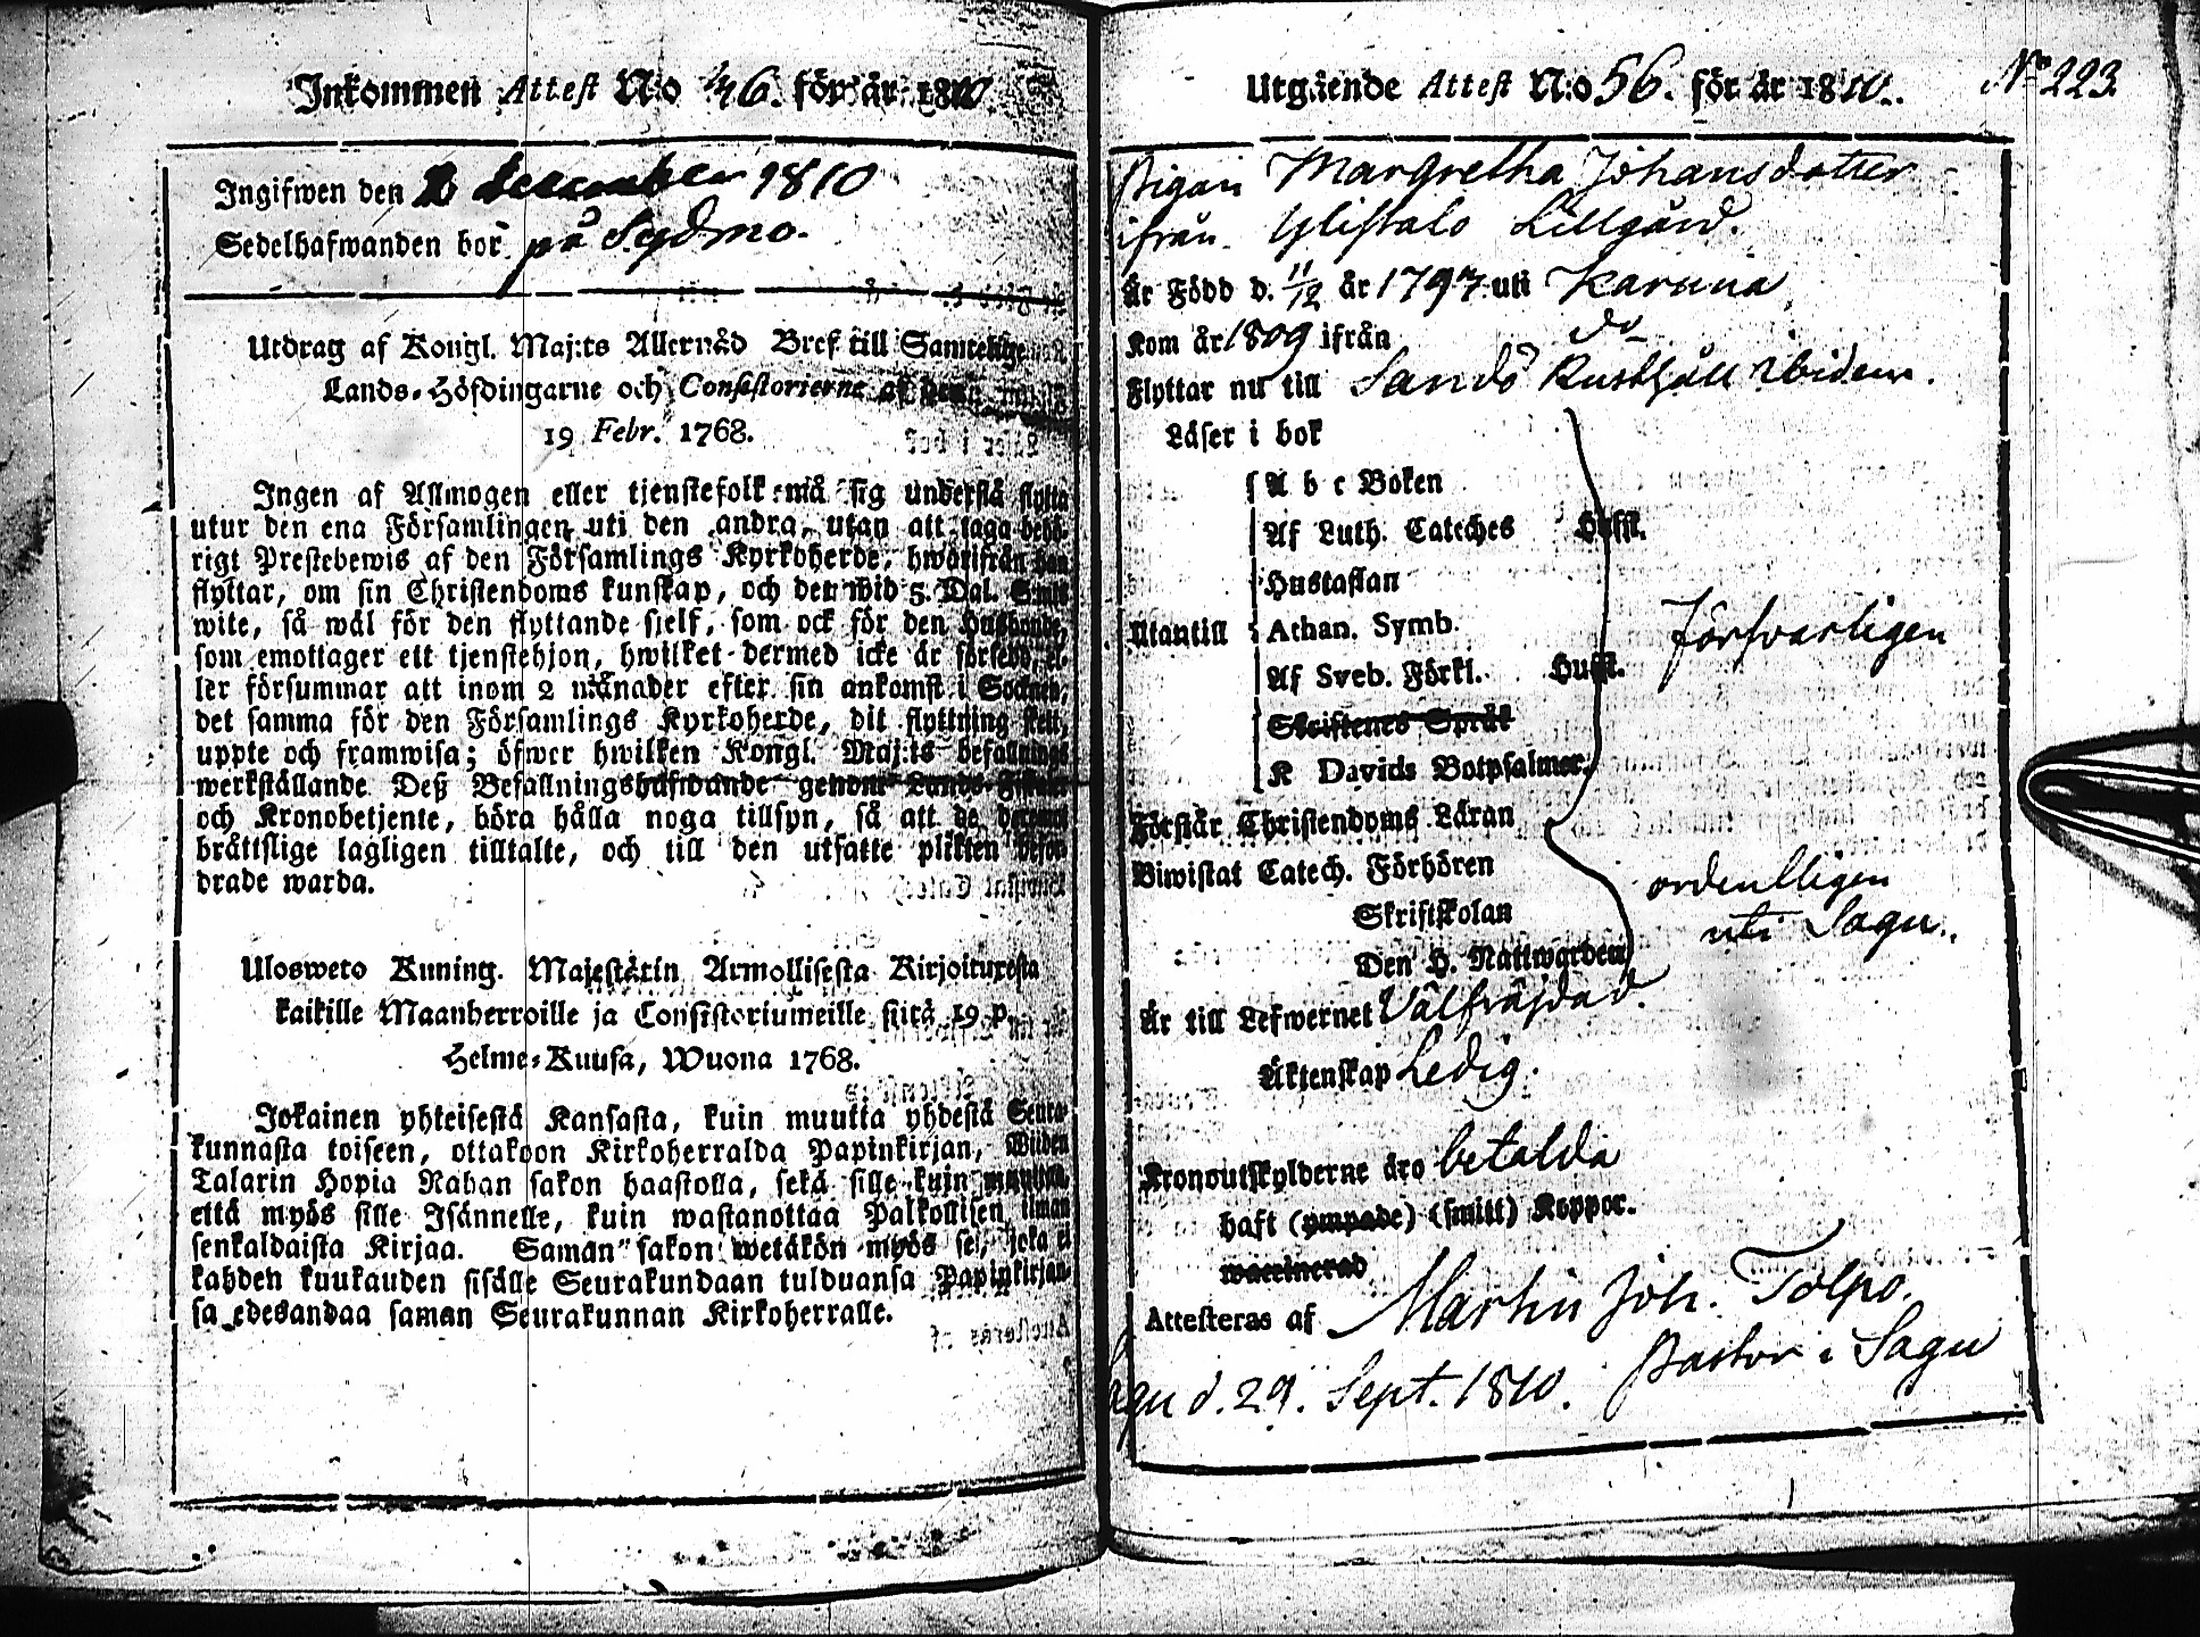 Inkommen Attest N:o 46. för år 1810.
Ingifwen den 2 December 1810
Sedelhafwanden bor på Sydmo.
Utdrag af Kongl. Maj:ts Allernåd Bref till Samtelige
Lands-Höfdingarne och Consistorierne af den
19 Febr. 1768.
Ingen af Allmogen eller tjenstefolk må sig understå flytta
utur den ena Församlingen uti den andra, utan att taga behö-
rigt Prestebewis af den Församlings Kyrkoherde, hwarifrån han
flyttar, om sin Christendoms kunskap, och det wid 5. Dal. S:mts
wite, så wäl för den flyttande sjelf, som ock för den Husbonde,
som emottager ett tjenstehjon, hwilket dermed icke är försedd, el-
ler försummar att inom 2 månader efter sin ankomst i Socknen,
det samma för den Församlings Kyrkoherde, dit flyttning skett,
uppte och framwisa; öfwer hwilken Kongl. Maj:ts befallnings
werkställande Deß Befallningshafwande genom Lands-Fiskaler
och Kronobetjente, böra hålla noga tillsyn, så att de deremot
bråttslige lagligen tilltalte, och till den utsatte plikten befor-
drade warda.
Ulosweto Kuning. Majestätin Armollisesta Kirjoituxesta
kaikille Maanherroille ja Consistoriumeille siitä 19 p.
Helme-Kuusa, Wuona 1768.
Jokainen yhteisestä Kansasta, kuin muutta yhdestä Seura-
kunnasta toiseen, ottakoon Kirkoherralda Papinkirjan, Wiiden
Talarin Hopia Rahan sakon haastolla, sekä sille kuin muutta,
että myös sille Isännelle, kuin wastanottaa Palkollisen ilman
senkaldaista Kirjaa. Saman sakon wetäkön myös se, joka ei
kahden kuukauden sisälle Seurakundaan tulduansa Papinkirjan-
sa edesandaa saman Seurakunnan Kirkoherralle.
Utgående Attest N:o 56. för år 1810.
No 223.
Pigan Margretha Johansdotter
ifrån Ylistalo Lillgård.
Är Född d. 11/12 år 1797 uti Karuna
Kom år 1809 ifrån do
Flyttar nu till Sandö Rusthåll ibidem.
Läser i bok
A b c Boken
Af Luth. Cateches Husst.
Hustaflan
Utantill Athan. Symb. Försvarligen
Af Sveb. Förkl. Husst.
Skriftenes Språk
K Davids Botpsalmer.
Förstår Christendoms Läran
Biwistat Catech. Förhören ordentligen
Skriftskolan uti Sagu.
Den H. Nattwarden
Är till Lefwernet Välfräjdad.
Äktenskap Ledig.
Kronoutskylderne äro betalda
haft (ympade) (smitt) Koppor.
waccinerad
Attesteras af Martin Joh. Tolpo.
Pastor i Sagu
Sagu d. 29. Sept. 1810.